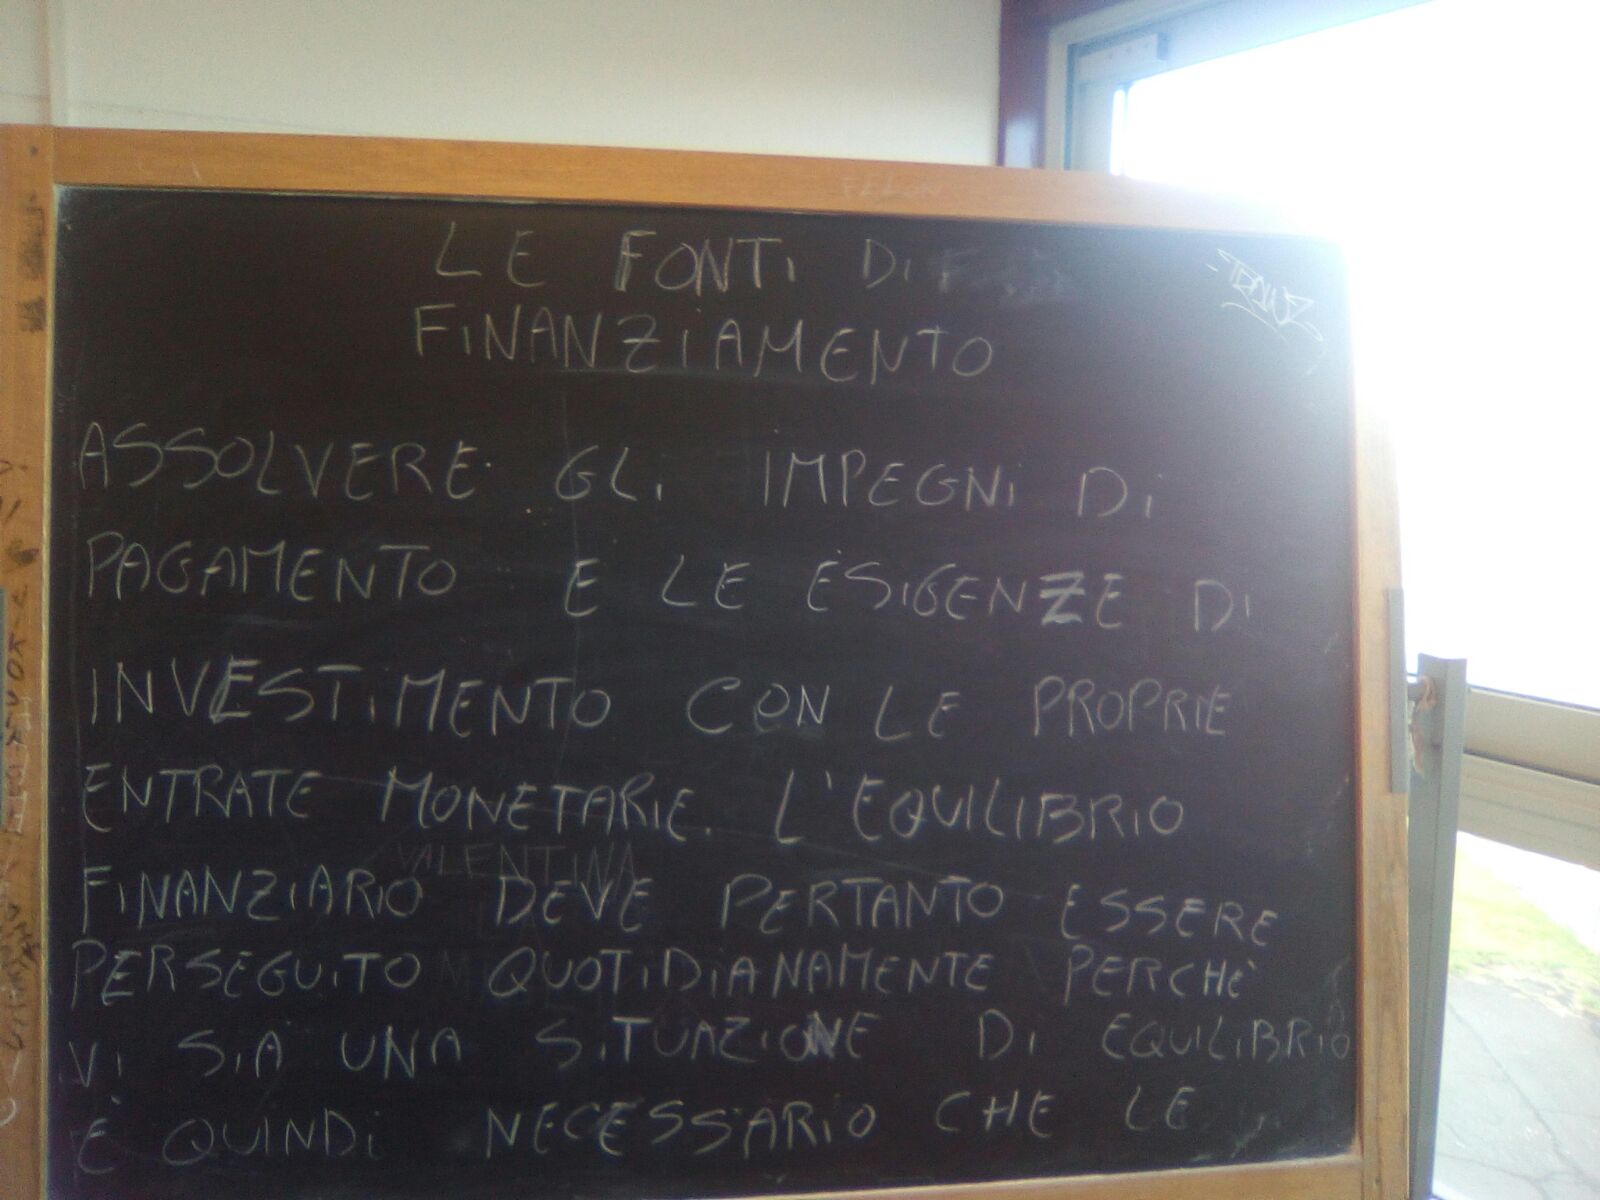 LE FONTI DI
FINANZIAMENTO
ASSOLVERE GLI IMPEGNI DI
PAGAMENTO E LE ESIGENZE DI
INVESTIMENTO CON LE PROPRIE
ENTRATE MONETARIE. L'EQUILIBRIO
VALENTINA
FINANZIARIO DEVE PERTANTO ESSERE
PERSEGUITO QUOTIDIANAMENTE PERCHÈ
VI SIA UNA SITUAZIONE DI EQUILIBRIO
È QUINDI NECESSARIO CHE LE